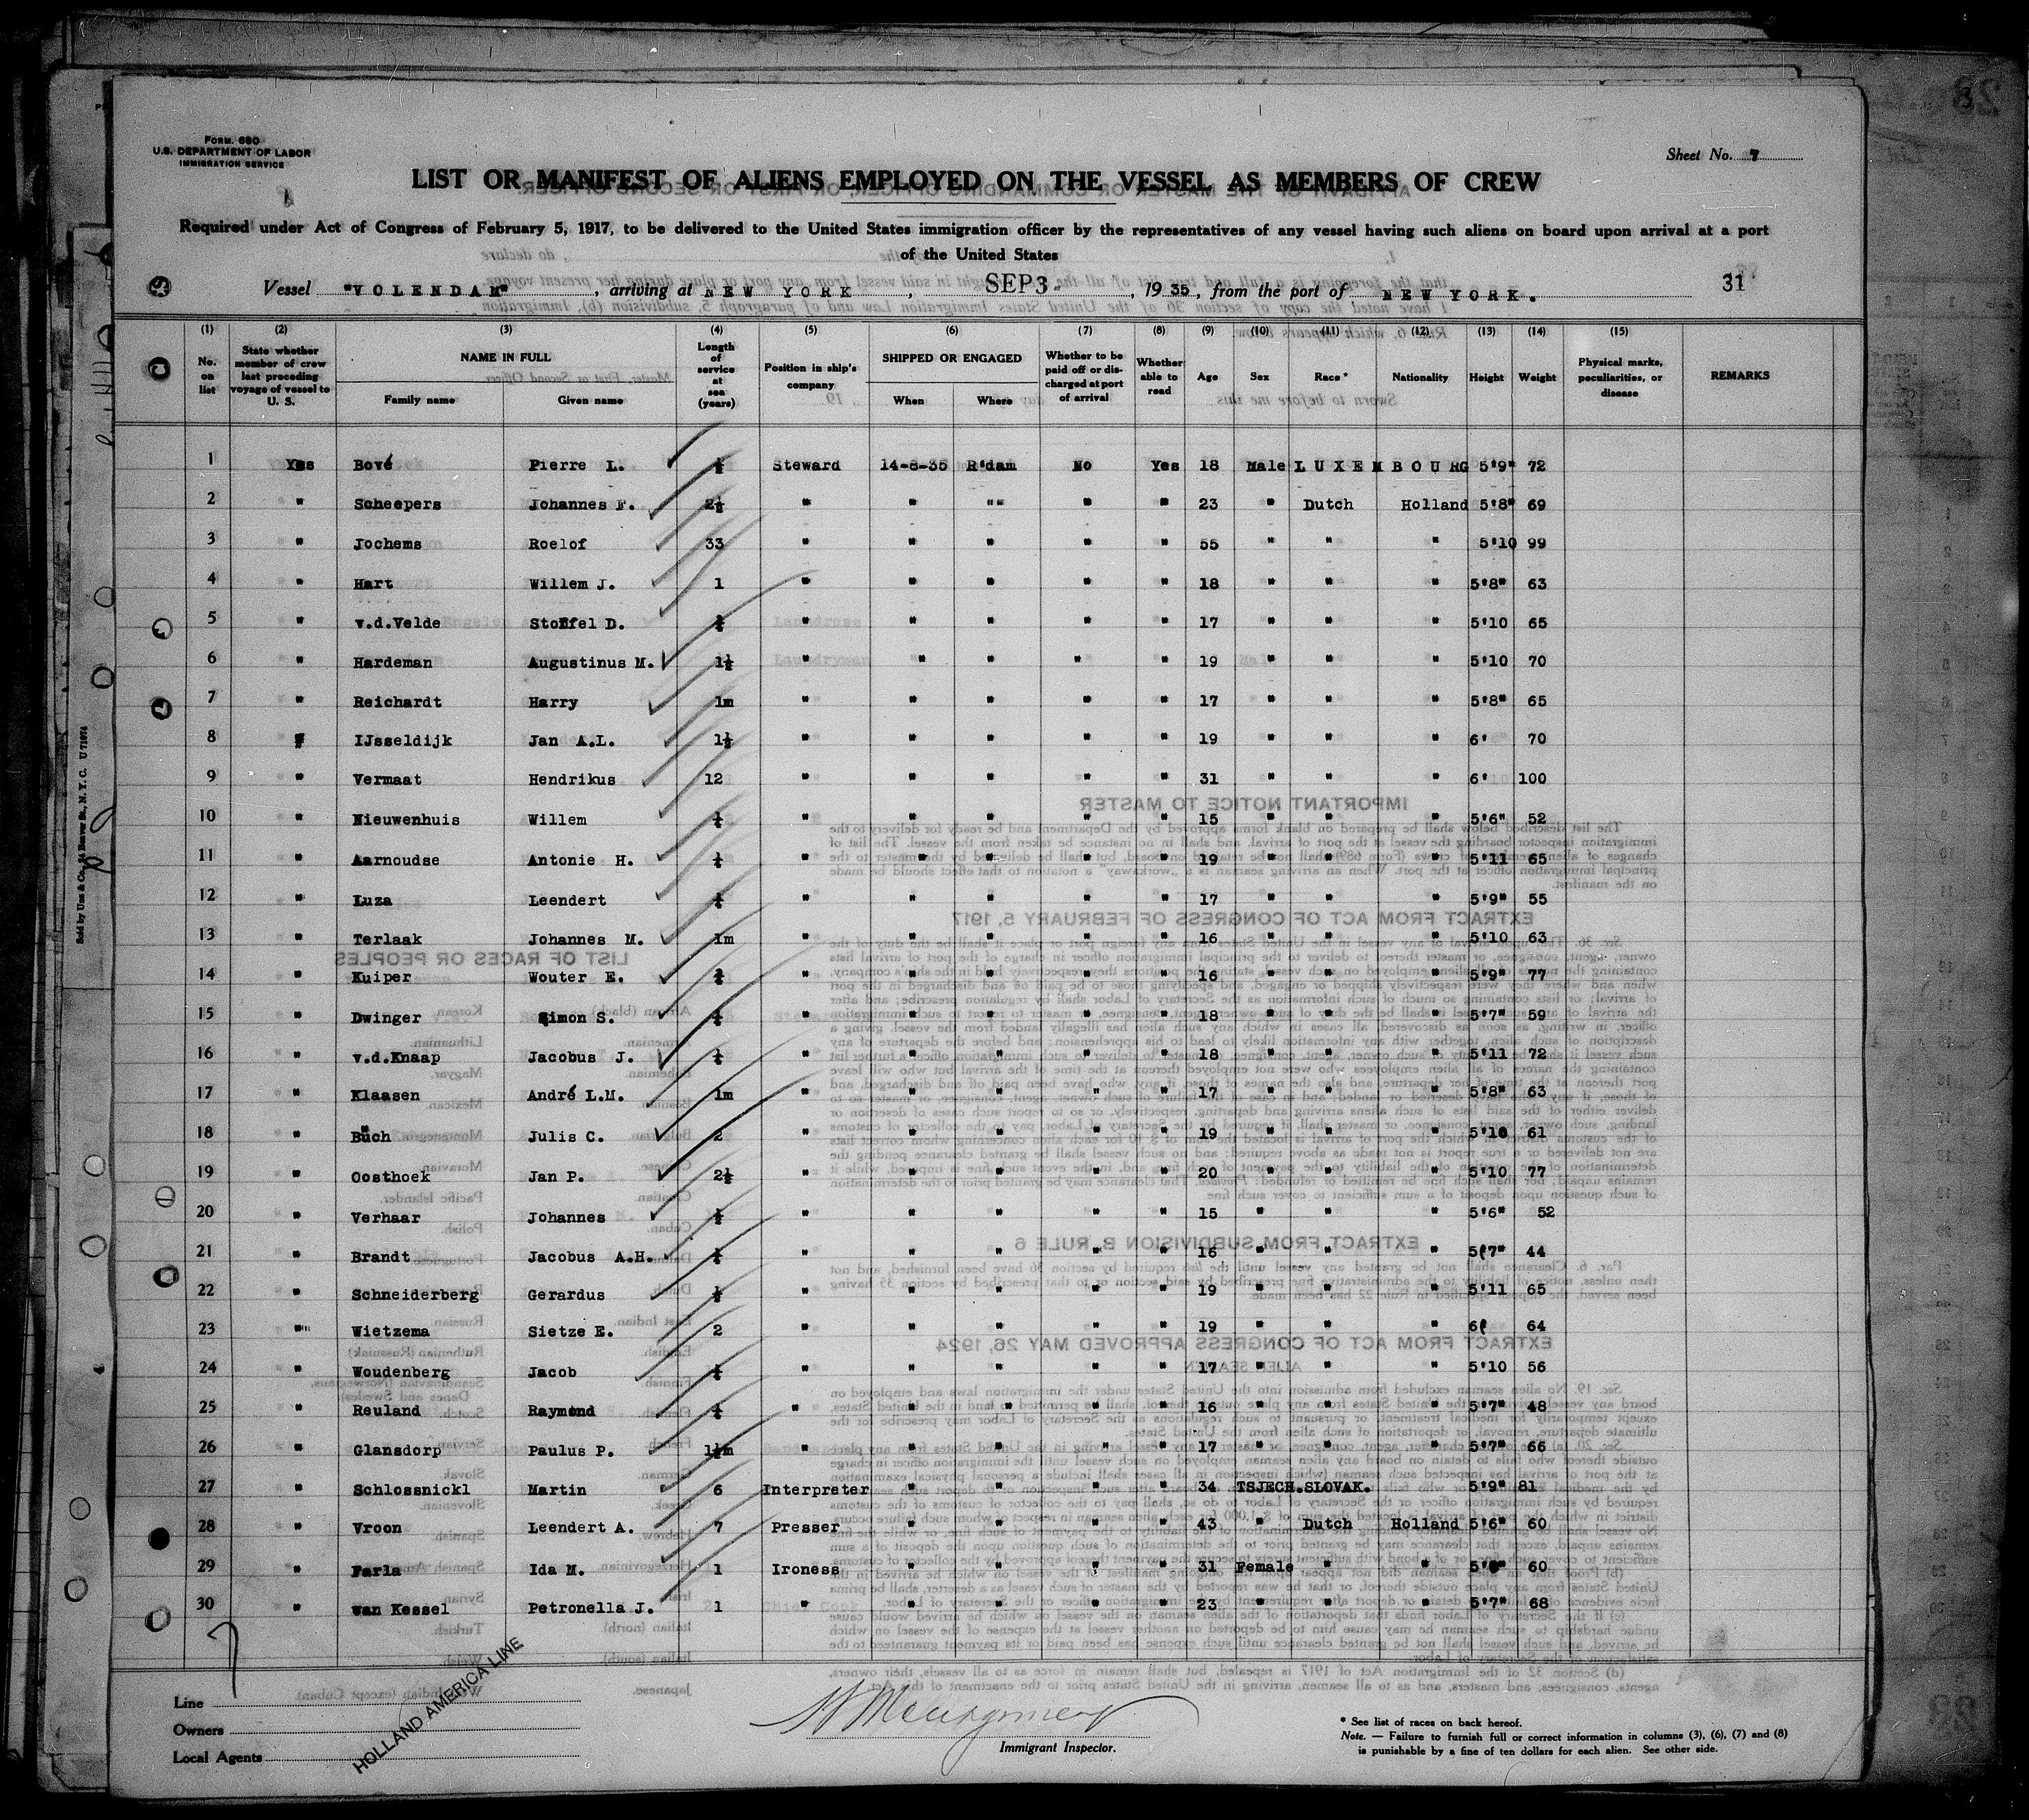 Form 680
U.S. DEPARTMENT OF LABOR
IMMIGRATION SERVICE
Sheet No. 7
LIST OR MANIFEST OF ALIENS EMPLOYED ON THE VESSEL AS MEMBERS OF CREW
Required under Act of Congress of February 5, 1917, to be delivered to the United States immigration officer by the representatives of any vessel having such aliens on board upon arrival at a port
of the United States
Vessel "VOLENDAM", arriving at NEW YORK, SEP 3, 1935, from the port of NEW YORK. 31
(1) (2) (3) (4) (5) (6) (7) (8) (9) (10) (11) (12) (13) (14) (15)
No. on list State whether member of crew last preceding voyage of vessel to U. S. NAME IN FULL Family name Given name Length of service at sea (years) Position in ship's company SHIPPED OR ENGAGED When Where Whether to be paid off or discharged at port of arrival Whether able to read Age Sex Race* Nationality Height Weight Physical marks, peculiarities, or disease REMARKS
1 Yes Bové Pierre L. Steward 14-8-35 R'dam No Yes 18 Male LUXEMBOURG 5'9" 72
2 " Scheepers Johannes F. 2½ " " "" " " 23 " Dutch Holland 5'8" 69
3 " Jochems Roelof 33 " " " " " 55 " " " 5'10 99
4 " Hart Willem J. 1 " " " " " 18 " " " 5'8" 63
5 " v.d.Velde Stoffel D. " " " " " 17 " " " 5'10 65
6 " Hardeman Augustinus M. 1½ " " " " " 19 " " " 5'10 70
7 " Reichardt Harry 1m " " " " " 17 " " " 5'8" 65
8 " IJsseldijk Jan A.L. 1½ " " " " " 19 " " " 6' 70
9 " Vermaat Hendrikus 12 " " " " " 31 " " " 6' 100
10 " Nieuwenhuis Willem " " " " " 15 " " " 5'6" 52
11 " Aarnoudse Antonie H. " " " " " 19 " " " 5'11 65
12 " Luza Leendert " " " " " 17 " " " 5'9" 55
13 " Terlaak Johannes M. 1m " " " " " 16 " " " 5'10 63
14 " Kuiper Wouter E. " " " " " 16 " " " 5'9" 77
15 " Dwinger Simon S. " " " " " 18 " " " 5'7" 59
16 " v.d.Knaap Jacobus J. " " " " " 18 " " " 5'11 72
17 " Klaasen André L.M. 1m " " " " " 17 " " " 5'8" 63
18 " Büch Julis C. 2 " " " " " 19 " " " 5'10 61
19 " Oosthoek Jan P. 2½ " " " " " 20 " " " 5'10 77
20 " Verhaar Johannes " " " " " 15 " " " 5'6" 52
21 " Brandt Jacobus A.H. " " " " " 16 " " " 5(7" 44
22 " Schneiderberg Gerardus " " " " " 19 " " " 5'11 65
23 " Wietzema Sietze E. 2 " " " " " 19 " " " 6( 64
24 " Woudenberg Jacob " " " " " 17 " " " 5'10 56
25 " Reuland Raymond " " " " " 16 " " " 5'7" 48
26 " Glansdorp Paulus P. 1½m " " " " " 17 " " " 5'7" 66
27 " Schlossnickl Martin 6 Interpreter " " " " 34 TSJECH.SLOVAK. 5'9" 81
28 " Vroon Leendert A. 7 Presser " " " " 43 " Dutch Holland 5'6" 60
29 " Farla Ida M. 1 Ironess " " " " 31 Female " " 60
30 " van Kessel Petronella J. 1 " " " " " 23 " " " 5'7" 68
7
Line
Owners
Local Agents
HOLLAND AMERICA LINE
Immigrant Inspector.
* See list of races on back hereof.
Note. — Failure to furnish full or correct information in columns (3), (6), (7) and (8)
is punishable by a fine of ten dollars for each alien. See other side.